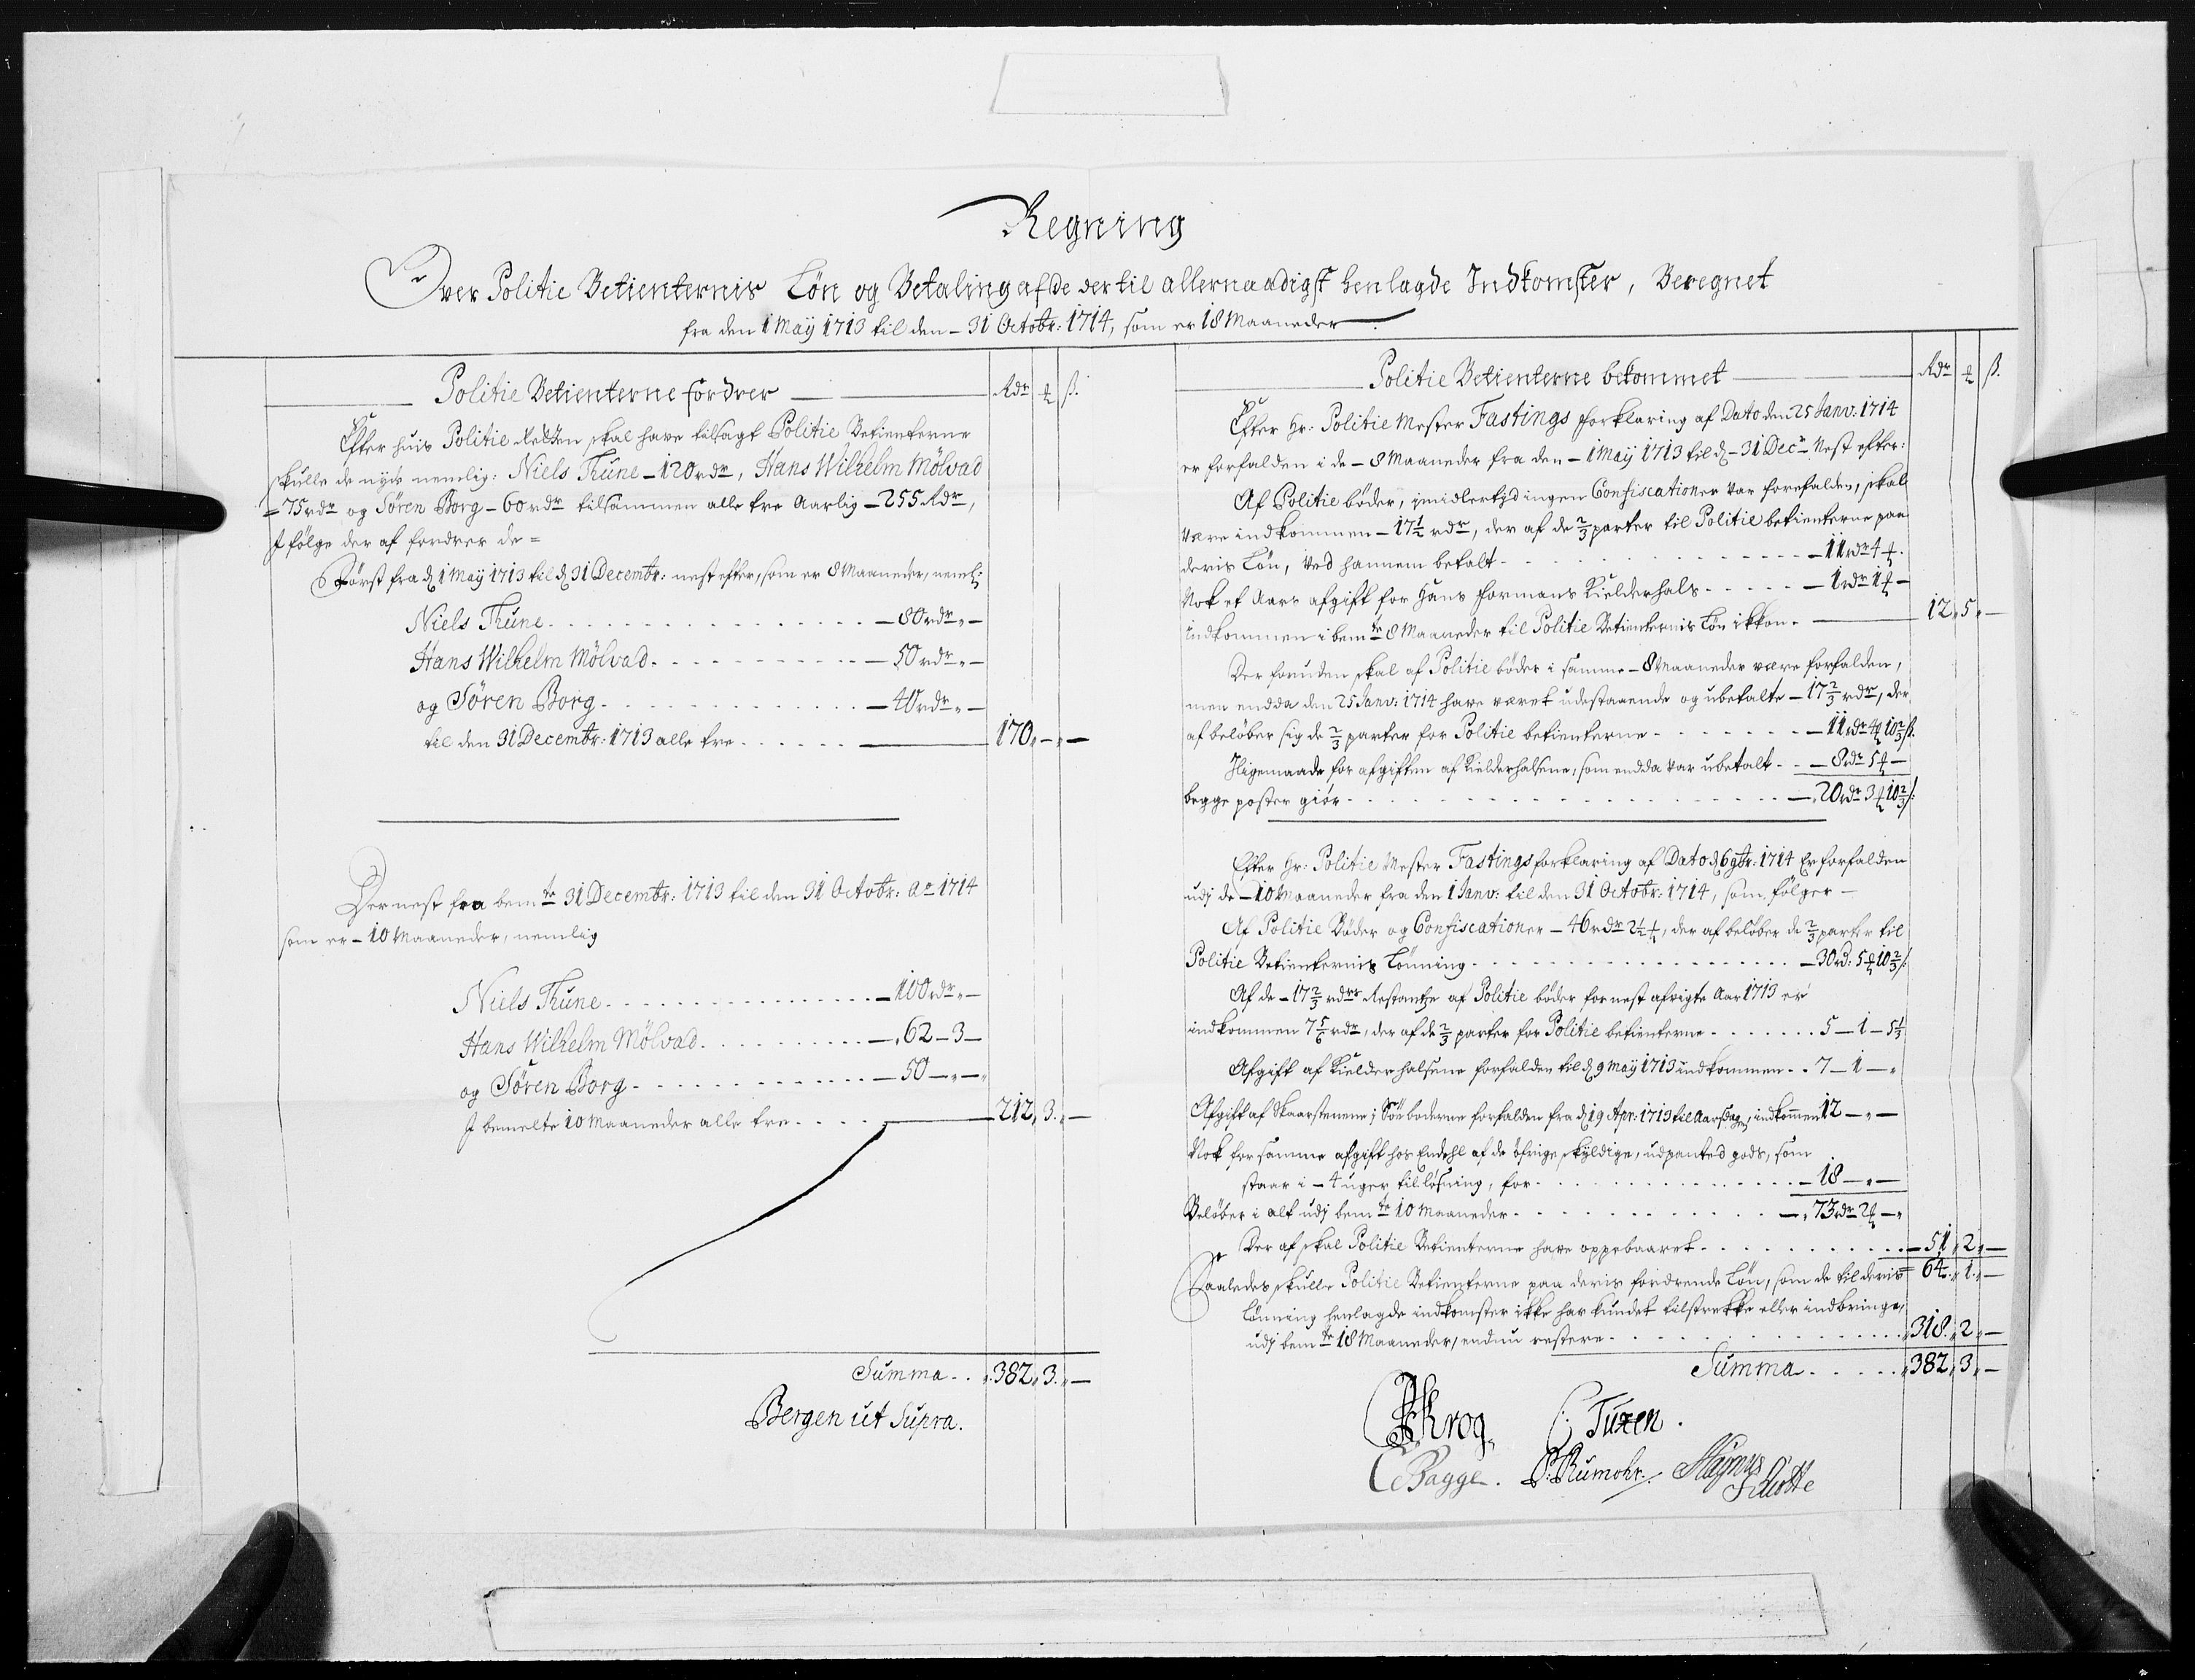 Regning
Over Politie Betienternis Løn og Betaling af de der til allernaadigst henlagde Indkomster, Beregnet
fra den 1 Maÿ 1713 til den - 31 Octobr: 1714, som er 18 Maaneder.
Politie Betienterne fordrer Rdr ß.
Efter huis Politie Retten skal have tilsagt Politie Betienterne
skulle de nyde nemlig: Niels Thune - 120 rdr, Hans Wilhelm Mölvad
- 75 rdr og Sören Borg - 60 rdr tilsammen alle tre Aarlig - 255 Rdr,
I følge der af fordrer de =
Først fra d 1 Maÿ 1713 til d 31 Decembr: nest efter, som er 8 Maaneder, neml:
Niels Thune - 80 rdr „ -
Hans Wilhelm Mölvad - 50 rdr „ -
og Sören Borg - 40 rdr „ -
til den 31 Decembr: 1713 alle tre 170 „ - „ -
Dernest fra bemte 31 Decembr: 1713 til den 31 Octobr: Ao 1714
som er - 10 Maaneder, nemlig
Niels Thune - 100 rdr „ -
Hans Wilhelm Mölvad - „ 62 - 3 -
og Sören Borg - 50 - „ - „
I bemelte 10 Maaneder alle tre - 212 „ 3 „ -
Summa „ 382 „ 3 „ -
Bergen ut Supra.
Politie Betienterne bekommet Rdr ß.
Efter Hr: Politie Mester Fastings forklaring af Dato den 25 Janv: 1714
er forfalden i de - 8 Maaneder fra den - 1 Maÿ 1713 til d - 31 Decr Nest efter:
Af Politie bøder, imidlertjd ingen Confiscationer var forefalden, skal
være indkommen - 17 1/2 rdr, der af de 2/3 parter til Politie betienterne paa
deris Løn, ved hannem betalt - 11 rdr 4
Nok et Aars afgift for Hans Formans Kielderhals - 1 rdr 1 -
indkommen i bemte 8 Maaneder til Politie Betienternis Løn ikkon 12 „ 5 „ -
Der foruden skal af Politie bøder i samme - 8 Maaneder være forfalden,
men endda den 25 Janv: 1714 have været udestaaende og ubetalte - 17 2/3 rdr, der
af beløber sig de 2/3 parter for Politie betienterne - 11 rdr 4 10 2/3 ß.
Iligemaade for afgiften af Kielderhalsene, som endda var ubetalt - 8 rdr 5 -
begge poster giør - 20 rdr 3 10 2/3 ß
Efter Hr: Politie Mester Fastings forklaring af Dato d 6 9br: 1714 Er forfalden
udj de - 10 Maaneder fra den 1 Janv: til den 31 Octobr: 1714, som følger -
Af Politie Bøder og Confiscationer - 46 rdr 2 1/2, der af beløber de 2/3 parter til
Politie Betienternis Lønning - 30 rd: 5 10 2/3 ß
Af de - 17 2/3 rdrs Restantze af Politie bøder for nest afvigte Aar 1713 er
indkommen 7 5/6 rdr, der af de 2/3 parter for Politie betienterne 5 - 1 - 5 1/3
Afgift af Kielderhalsene forfalden til d 9 Maÿ 1713 indkommen 7 - 1 - „
Afgift af Skaarstenene i Søe boderne forfalden fra d 19 Apr: 1713 til Aarsdagen, indkommen 12 - „ -
Nok for samme afgift hos Endehl af de øfrige skÿldige, udpanted gods, som
staar i - 4 uger til løsning, for - 18 - „ -
Beløber i alt udj bemte 10 Maaneder - „ 73 rdr 2 - „
Der af skal Politie Betienterne have oppebaaret - 51 „ 2 „ -
64 „ 1 „ -
Saaledes skulle Politie Betienterne paa deris fordrende Løn, som de til deris
Lønning henlagde indkomster ikke har kundet tilstrekke eller indbringe,
udj bemte 18 Maaneder, endnu restere „ 318 „ 2 „ -
Summa „ 382 „ 3 „ -
Krog. C: Tuxen.
C Bagge. P: Rumohr.